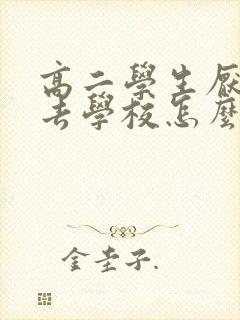 高二學生厭
去學校怎麼
金圭子.